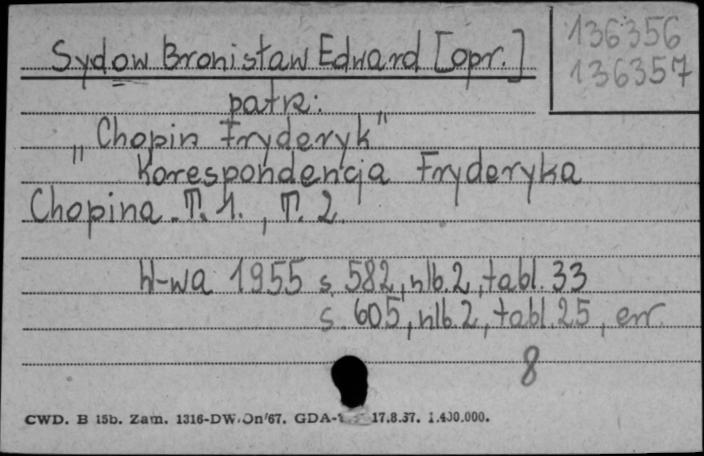 136356
136357
Sydow Bronisław Edward [opr.]
patrz:
„Chopin Fryderyk"
Korespondencja Fryderyka
Chopina. T. 1., T. 2.
W-wa 1955 s. 582, nlb. 2, tabl. 33
s. 605, nlb. 2, tabl. 25, err.
8
CWD. B 15b. Zam. 1316-DW/On/67. GDA- 17.8.67. 1.400.000.